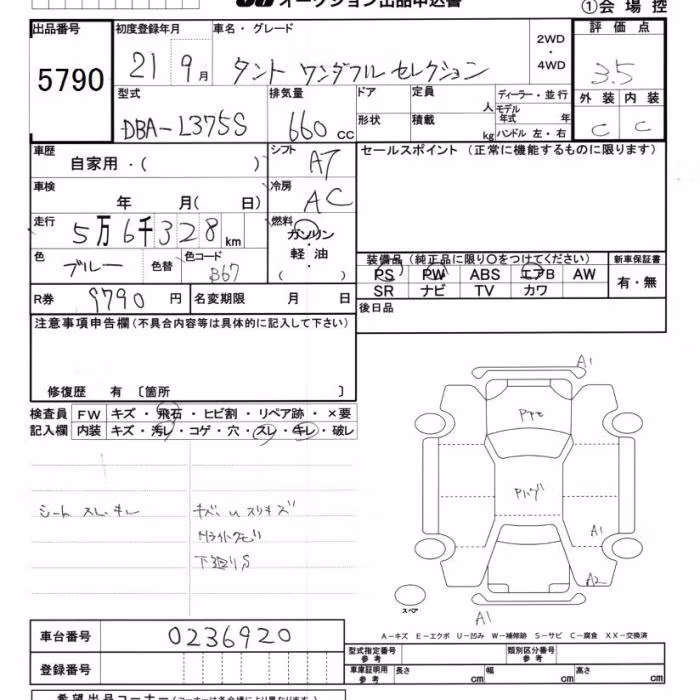 オークション出品申込書 ①会場控
出品番号 初度登録年月 車名・グレード 2WD・4WD 評価点
5790 21 9月 タント ワンダフル セレクション 3.5
型式 排気量 ドア 定員 人 ディーラー・並行 外装 内装
DBA-L375S 660 cc 形状 積載 kg モデル年式 年 ハンドル 左・右 C C
車歴 自家用・( ) シフト AT セールスポイント (正常に機能するものに限ります)
車検 年 月( 日) 冷房 AC
走行 5万6千328km 燃料 ガソリン 軽油 ( )
色 ブルー 色替 色コード B67
装備品(純正品に限り○をつけてください) 新車保証書
PS PW ABS エアB AW 有・無
SR ナビ TV カワ
R券 9790円 名変期限 月 日 後日品
注意事項申告欄(不具合内容等は具体的に記入して下さい)
修復歴 有 〔箇所 〕
検査員 FW キズ・飛石・ヒビ割・リペア跡・×要
記入欄 内装 キズ・汚レ・コゲ・穴・スレ・キレ・破レ
シート スレ・キレ キズ、U スリキズ
下廻りS
A1
A1
A2
スペア
A1
A-キズ E-エクボ U-凹み W-補修跡 S-サビ C-腐食 XX-交換済
車台番号 0236920
登録番号
型式指定番号 参考 類別区分番号 参考
車庫証明用 参考 長さ cm 幅 cm 高さ cm
希望出品コーナー(コーナーは各会場により異なります)